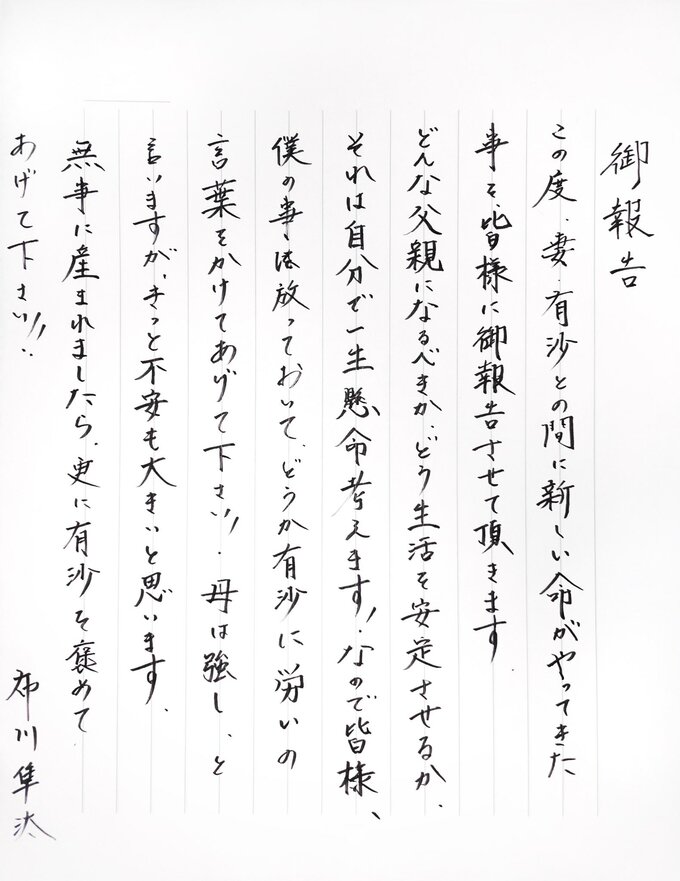 御報告
この度、妻・有沙との間に新しい命がやってきた
事を、皆様に御報告させて頂きます
どんな父親になるべきか、どう生活を安定させるか、
それは自分で一生懸命考えます!!なので皆様、
僕の事は放っておいて、どうか有沙に労いの
言葉をかけてあげて下さい!!母は強し、と
言いますが、きっと不安も大きいと思います。
無事に産まれましたら、更に有沙を褒めて
あげて下さい!!
布川隼汰